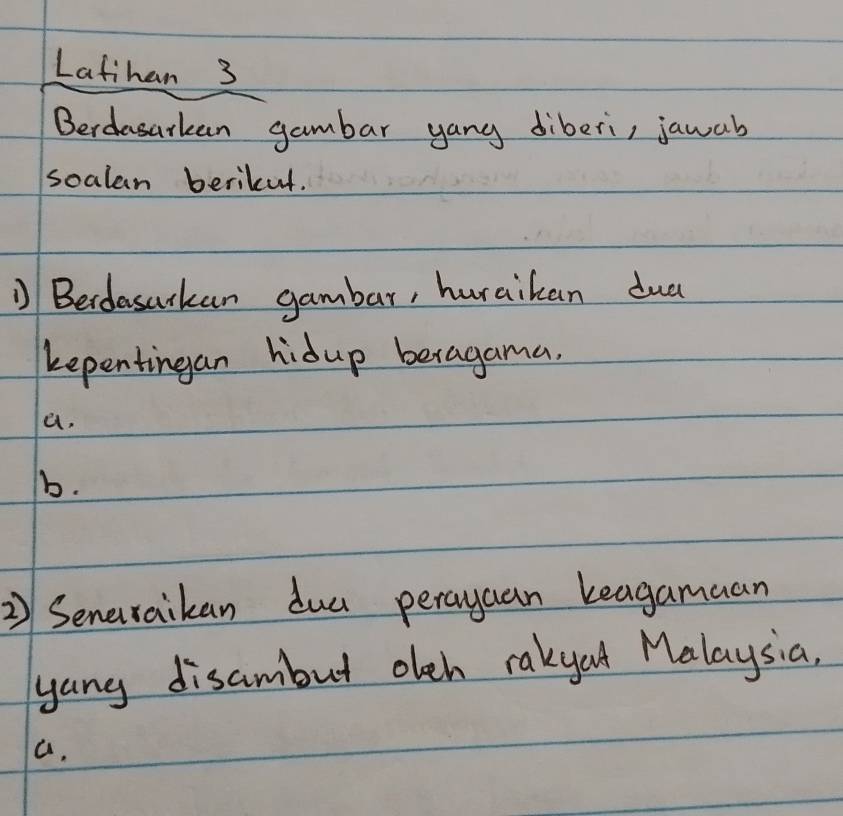 Latihan 3
Berdasarkan gambar yang diberi, jawab
soalan berikut.
1) Berdasarkan gambar, huraikan dua
kepentingan hidup beragama.
a.
b.
2) Senaraikan dua perayaan keagamaan
yang disambut oleh rakyat Malaysia.
a.